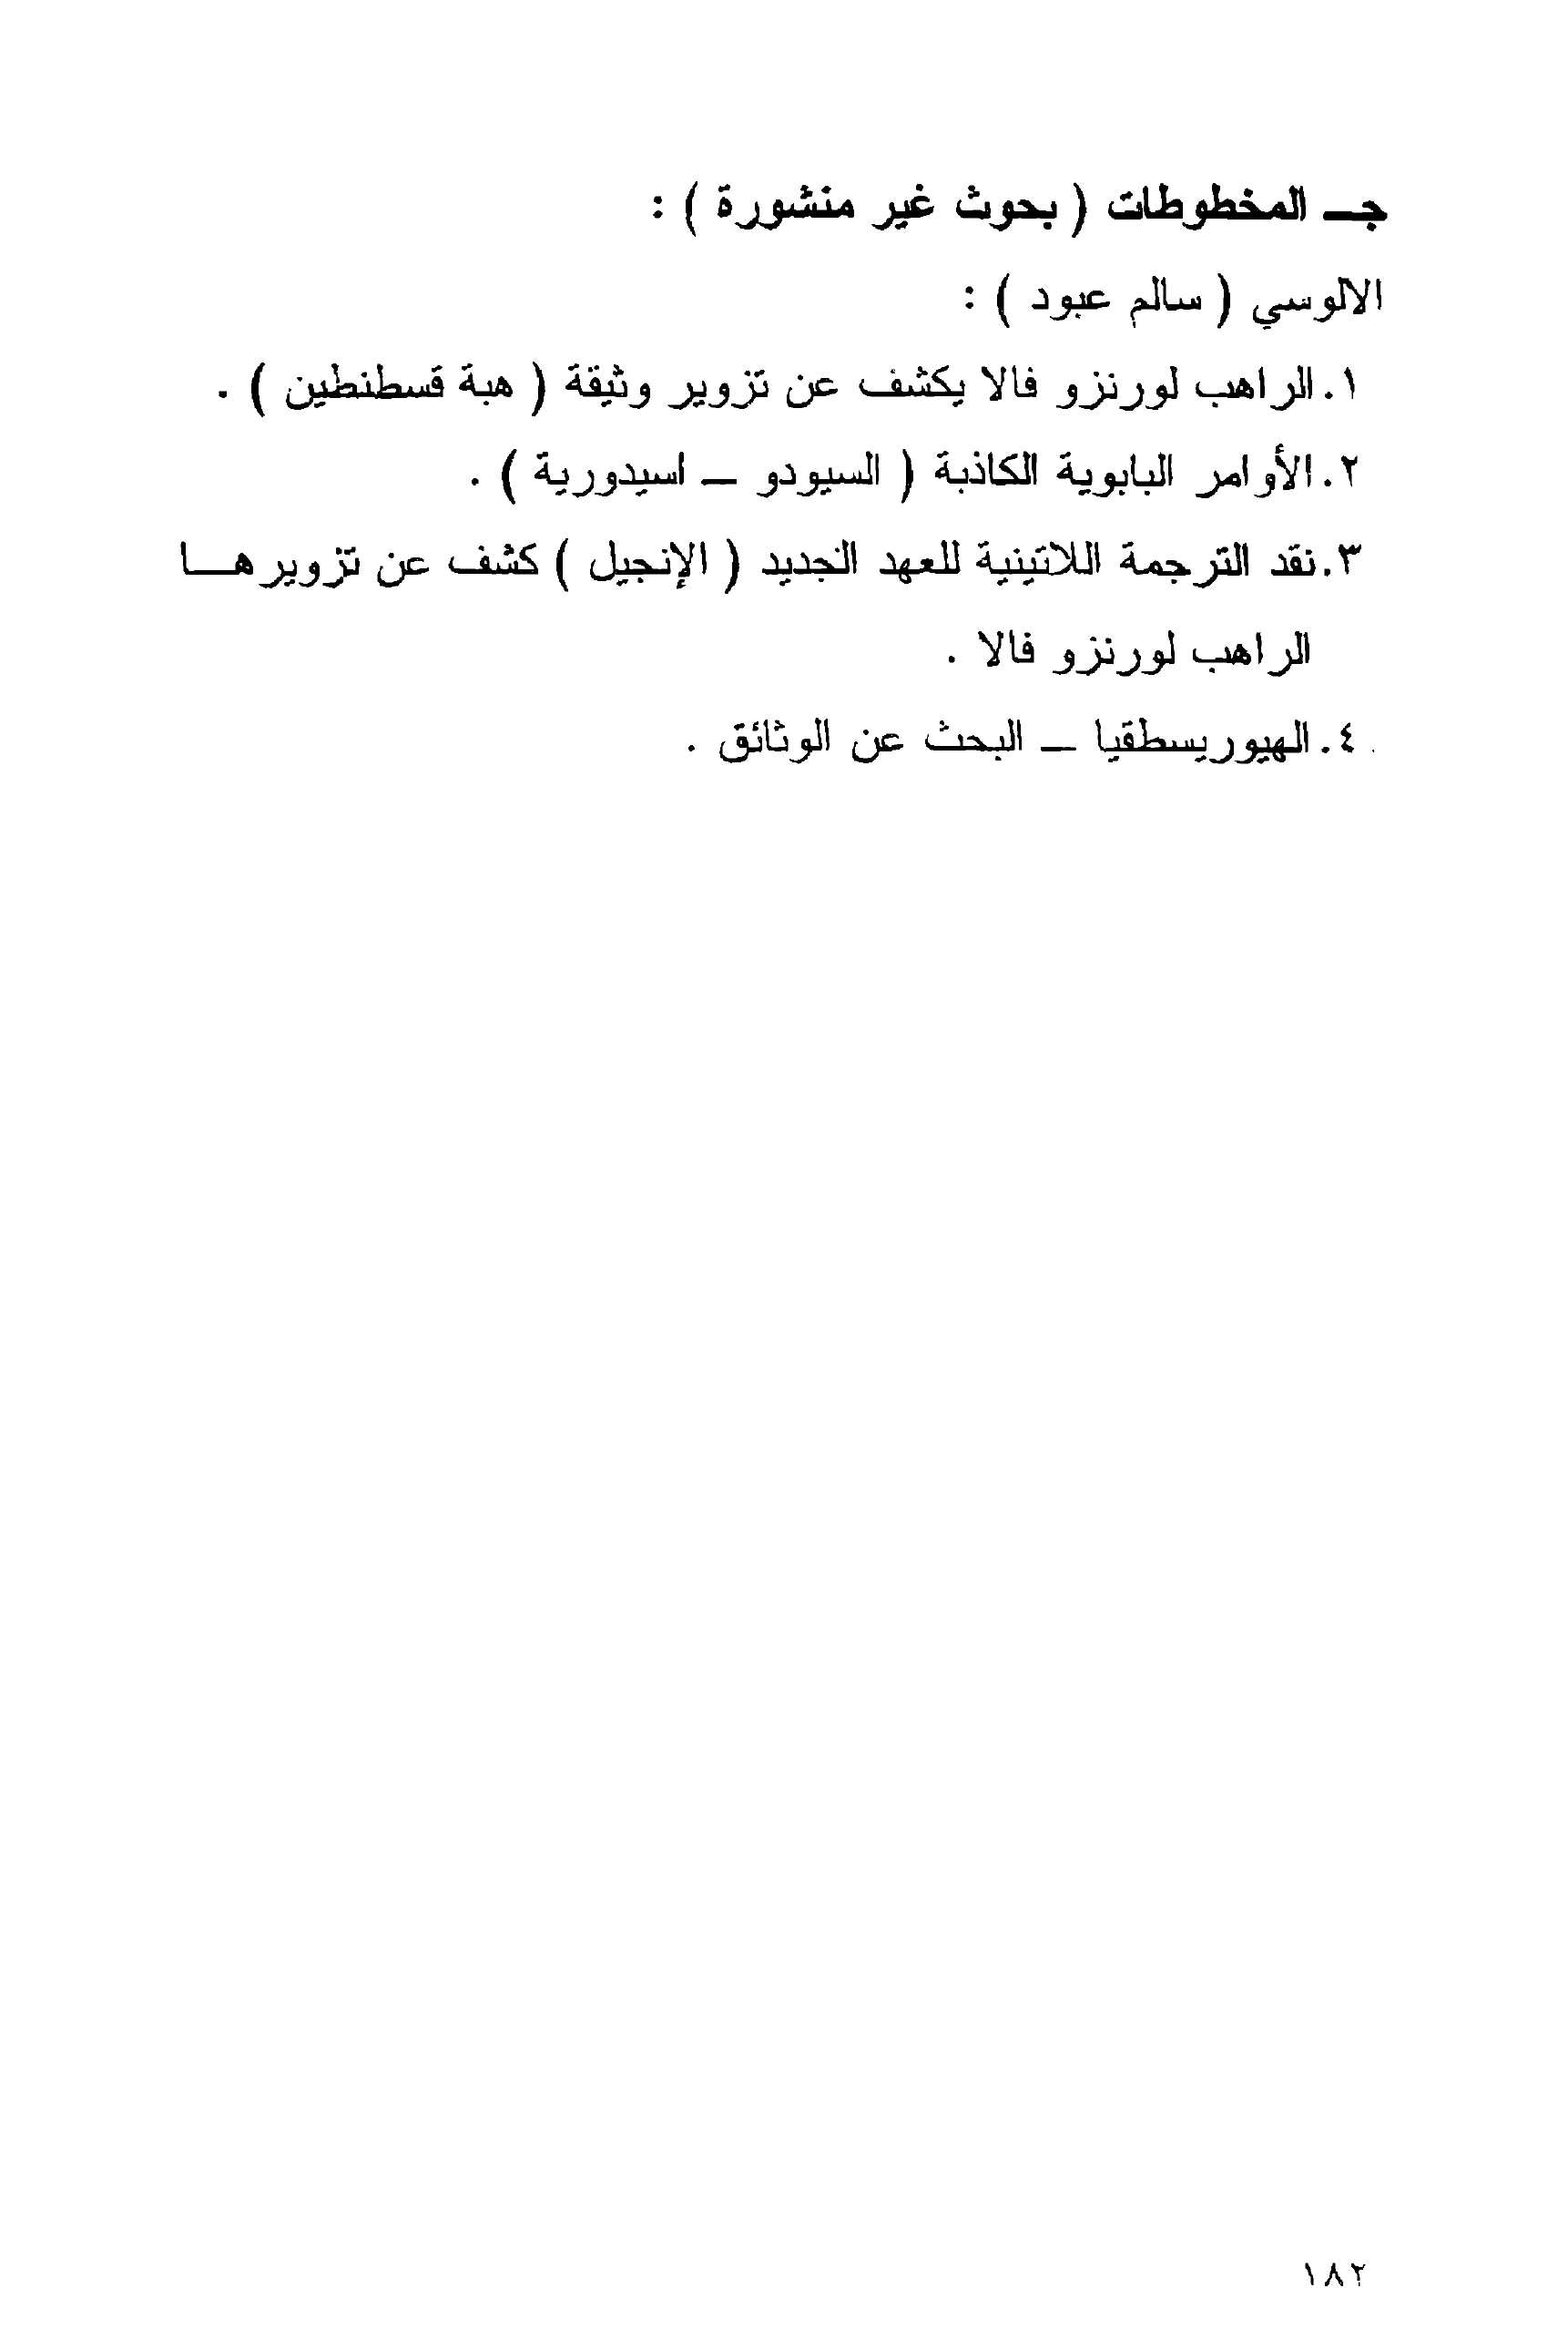 جـ - المخطوطات ( بحوث غير منشورة ) :
الالوسي ( سالم عبود ) :
١. الراهب لورنزو فالا يكشف عن تزوير وثيقة ( هبة قسطنطين ) .
٢. الأوامر البابوية الكاذبة ( السيودو - اسيدورية ) .
٣. نقد الترجمة اللاتينية للعهد الجديد ( الإنجيل ) كشف عن تزويرهـــا
الراهب لورنزو فالا .
٤. الهيوريسطقيا - البحث عن الوثائق .
١٨٢